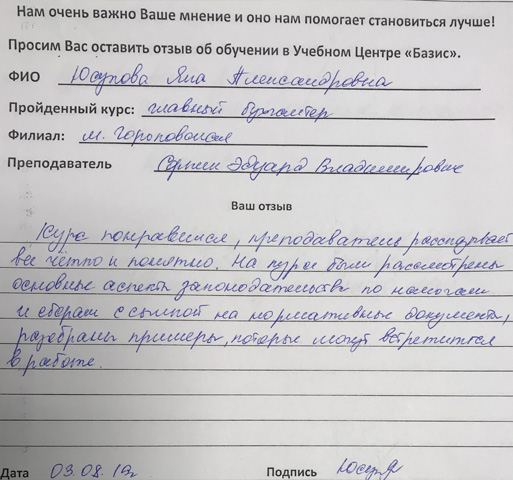 Нам очень важно Ваше мнение и оно нам помогает становиться лучше!
Просим Вас оставить отзыв об обучении в Учебном Центре «Базис».
ФИО Юсупова Яна Александровна
Пройденный курс: главный бухгалтер
Филиал: м.
Преподаватель Эдуард Владимирович
Ваш отзыв
Курс понравился, преподаватель рассказывает
все чётко и понятно. На курсе были рассмотрены
основные аспекты законодательства по налогам
и сборам с ссылкой на нормативные документы,
разобраны примеры, которые могут встретиться
в работе.
Дата 03.08.19г Подпись